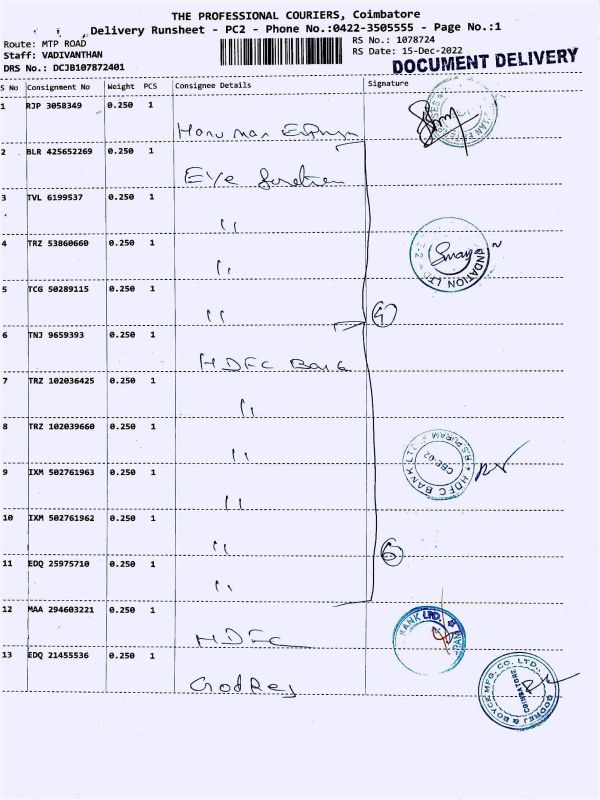 THE PROFESSIONAL COURIERS, Coimbatore
Delivery Runsheet - PC2 - Phone No.:0422-3505555 - Page No.:1
Route: MTP ROAD
RS No.: 1078724
Staff: VADIVANTHAN
RS Date: 15-Dec-2022
DRS No.: DCJB107872401
DOCUMENT DELIVERY
S No Consignment No Weight PCS Consignee Details Signature
1 RJP 3058349 0.250 1
Hanuman
2 BLR 425652269 0.250 1
Eye
3 TVL 6199537 0.250 1
"
4 TRZ 53860660 0.250 1
"
5 TCG 50289115 0.250 1
"
4
6 TNJ 9659393 0.250 1
HDFC Bank
7 TRZ 102036425 0.250 1
"
8 TRZ 102039660 0.250 1
"
9 IXM 502761963 0.250 1
"
10 IXM 502761962 0.250 1
"
6
11 EDQ 25975710 0.250 1
"
12 MAA 294603221 0.250 1
HDFC
13 EDQ 21455536 0.250 1
Godrej
NDATION LTD
HDFC BANK LTD
R.S.PURAM
CBE-02
BANK LTD.
GODREJ & BOYCE MFG. CO. LTD.
COIMBATORE